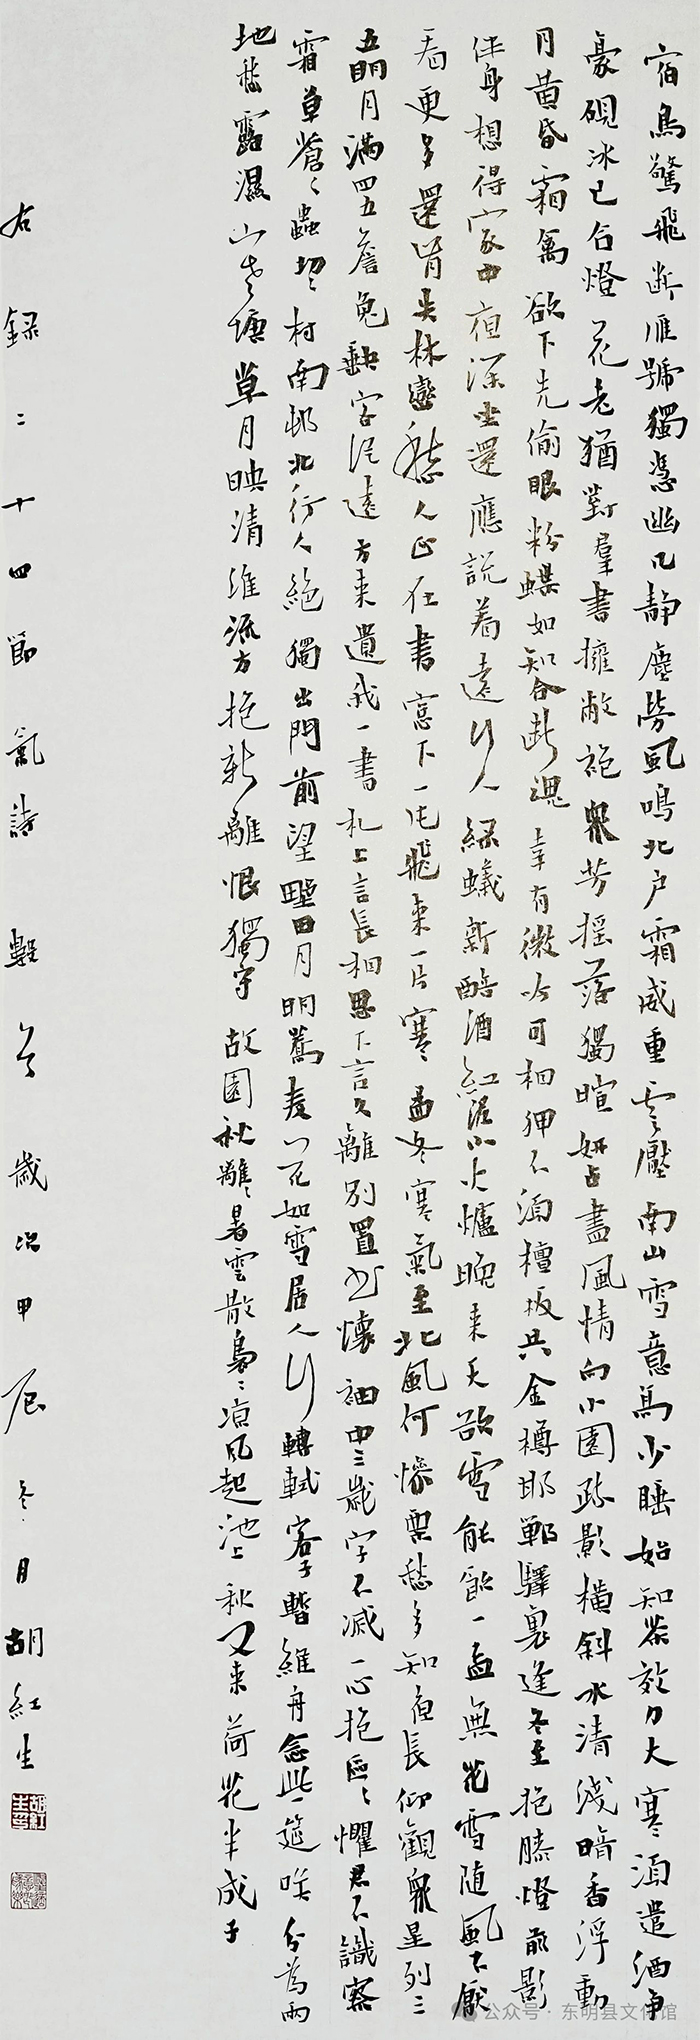 宿鳥驚飛斷雁號獨憑幽几靜塵勞風鳴北戶霜威重雲壓南山雪意高少睡始知茶效力大寒須遣酒爭
豪硯冰已合燈花老猶對羣書擁敝袍衆芳搖落獨暄妍占盡風情向小園疏影橫斜水清淺暗香浮動
月黃昏霜禽欲下先偷眼粉蝶如知合斷魂幸有微吟可相狎不須檀板共金樽邯鄲驛裏逢冬至抱膝燈前影
伴身想得家中夜深坐還應說着遠行人綠蟻新醅酒紅泥小火爐晚來天欲雪能飲一盃無花雪隨風不厭
看更多還肯失林巒愁人正在書窓下一片飛來一片寒孟冬寒氣至北風何慘慄愁多知夜長仰觀衆星列三
五明月滿四五詹兔缺客從遠方來遺我一書札上言長相思下言久離別置书懷袖中三歲字不滅一心抱區々懼君不識察
霜草蒼々蟲切々村南邨北行人絕獨出門前望野田月明蕎麦花如雪居人行轉軾客子暫維舟念此一筵咲分為兩
地愁露濕寒塘草月映清淮流方抱新離恨獨守故園秋離々暑雲散裊々涼風起池上秋又來荷花半成子
右録二十四節氣詩數首歲次甲辰冬月胡紅生
公众号·东明县文化馆